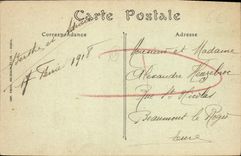 Carte Postale
Correspondance
Adresse
Berthe et
17 Février 1918
Monsieur et Madame
Alexandre
Rue St Nicolas
Beaumont le Roger
Eure